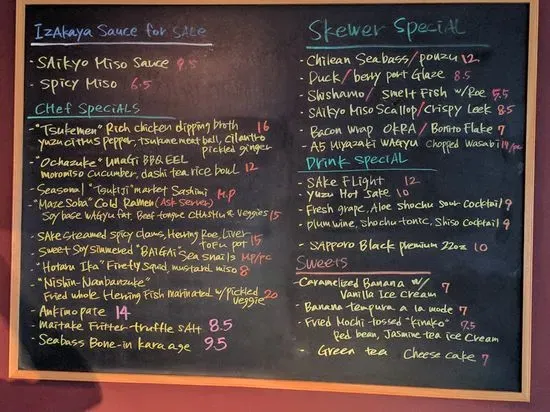 Izakaya Sauce for SALE
- SAikyo Miso Sauce 9.5
- Spicy Miso 6.5
CHef SpeciALS
- "Tsukemen" Rich chicken dipping broth 16
yuzu citrus pepper, tsukune meat ball, cilantro
pickled ginger
- "Ochazuke" UnaGi BBQ EEL
moromiso cucumber, dashi tea rice bowl 12
- Seasonal "Tsukiji" market Sashimi M.P
- "Maze Soba" Cold Ramen (Ask Server)
Soy base WAGyu fat, Beef tongue CHAShu & Veggies 15
- SAke Steamed spicy clams, Herring Roe, Liver
tofu pot 15
- Sweet Soy Simmered "BAIGAi" Sea snails MP/pc
- "Hotaru Ika" Firefly Squid, mustard miso 8
- "Nishin-Nanbanzuke"
Fried whole Herring Fish marinated w/pickled
veggie 20
- Ankimo pate 14
- Maitake Fritter-truffle sAlt 8.5
- Seabass Bone-in kara age 9.5
Skewer SpeciAL
- Chilean Seabass/ponzu 12
- Duck/berry port Glaze 8.5
- Shishamo/Smelt Fish w/Roe 5.5
- SAikyo Miso Scallop/Crispy Leek 8.5
- Bacon wrap OKRA/Bonito Flake 7
- A5 Miyazaki WAGyu Chopped Wasabi 19/pc
Drink SpeciAL
- SAke FLight 12
- Yuzu Hot Sake 10
- Fresh grape, Aloe shochu sour Cocktail 9
- plum wine, shochu-tonic, Shiso Cocktail 9
- SAPPoro BLack premium 22oz 10
Sweets
- Caramelized Banana w/ 7
Vanilla Ice Cream
- Banana tempura a la mode 7
- Fried Mochi-tossed "kinako" 7.5
Red bean, Jasmine tea ice Cream
- Green tea Cheese cake 7